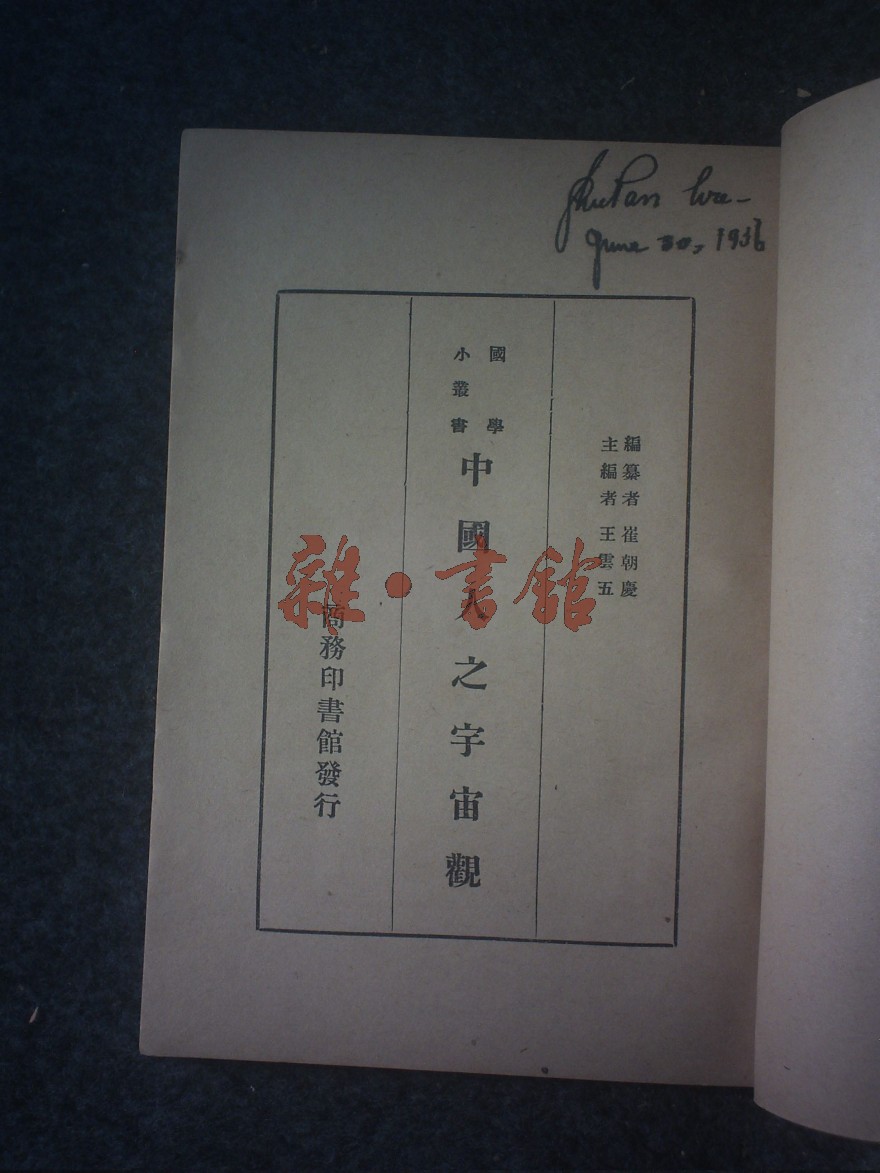 June 30, 1936
編纂者 崔朝慶
主編者 王雲五
國學
小叢書
中國人之宇宙觀
商務印書館發行
雜·書館